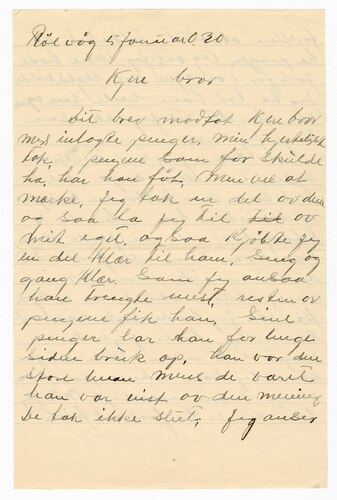 Rølvåg 5 Januar 1920
Kjere bror
Dit brev modtat Kjere bror
med inlagte penger, min hjerteligste
tak, pengene som før skulde
ha, har han fåt, Men vel at
merke, Jeg tok en del ov dem
og saa la jeg til ov
mit eget, ogsaa Kjøbte Jeg
en del Klær til ham, Seng og
gang Klær. Som jeg ansaa
han trengte mest, resten ov
pengene fik han. Sine
penger har han for lenge
siden brukt op, han var den
store mens de varte
han var vist ov den mening
de tok ikke slut, Jeg anser